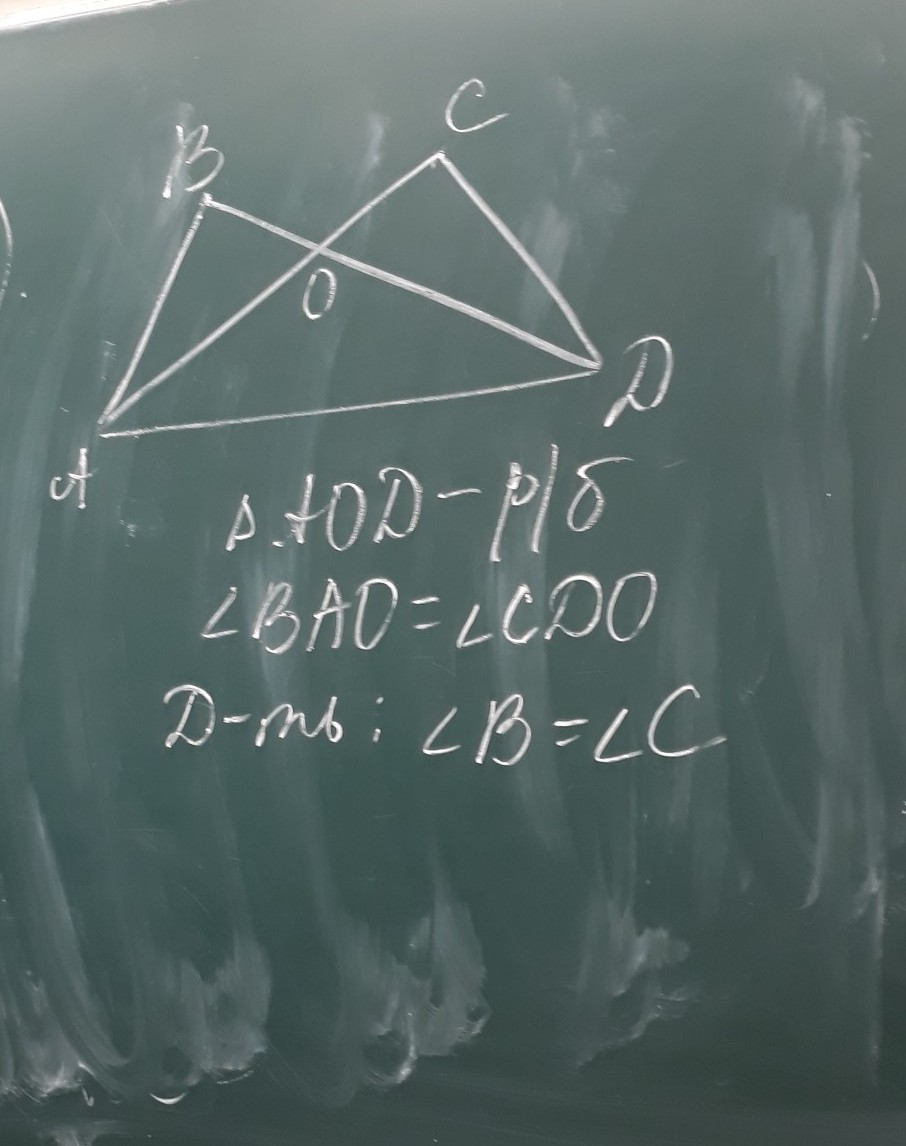 B
C
O
D
A
△ AOD – р/б
∠BAO = ∠CDO
Д-ть: ∠B = ∠C